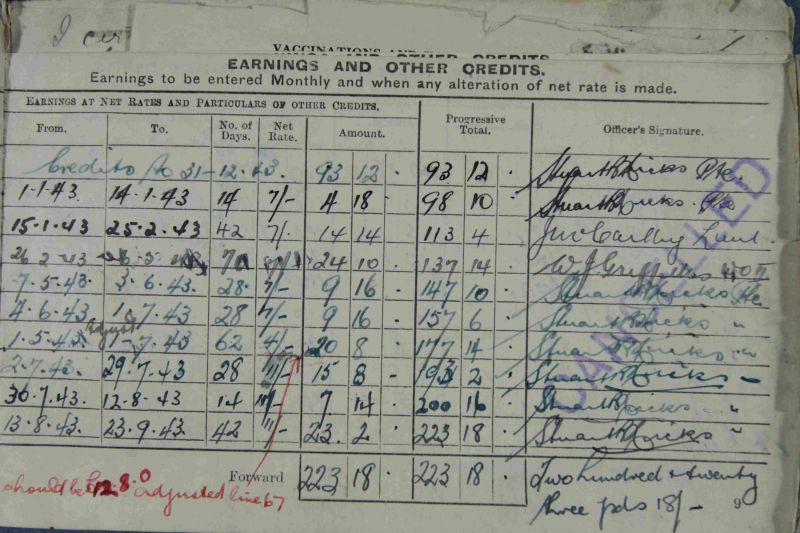 I cer
VACCINATIONS AND
EARNINGS AND OTHER CREDITS.
Earnings to be entered Monthly and when any alteration of net rate is made.
EARNINGS AT NET RATES AND PARTICULARS OF OTHER CREDITS.
From. To. No. of Days. Net Rate. Amount. Progressive Total. Officer's Signature.
Credits to 31-12-43. 93 12 93 12 Stuart R Hicks Pte.
1.1.43 14.1.43 14 7/- 4 18 98 10 Stuart R Hicks. Pte
15.1.43 25.2.43 42 7/- 14 14 113 4 J McCarthy Lieut.
26 2 43 5 43 70 7/- 24 10 137 14 W J Griffiths
7.5.43. 3.6.43. 28. 7/- 9 16 147 10 Stuart R Hicks Pte
4.6.43. 1.7.43 28 7/- 9 16 157 6 Stuart R Hicks "
1.5.43. adjust 1-7.43 62 4/- 20 8 177 14 Stuart R Hicks "
2.7.43. 29.7.43 28 11/- 15 8 193 2 Stuart R Hicks "
30.7.43. 12.8.43 14 11/- 7 14 200 16 Stuart R Hicks "
13.8.43. 23.9.43. 42 11/- 23. 2 223 18 Stuart R Hicks "
CANCELLED
Forward 223 18 223 18 Two hundred & twenty
three pds 18/- 9
should be 12.8.0 adjusted line 67